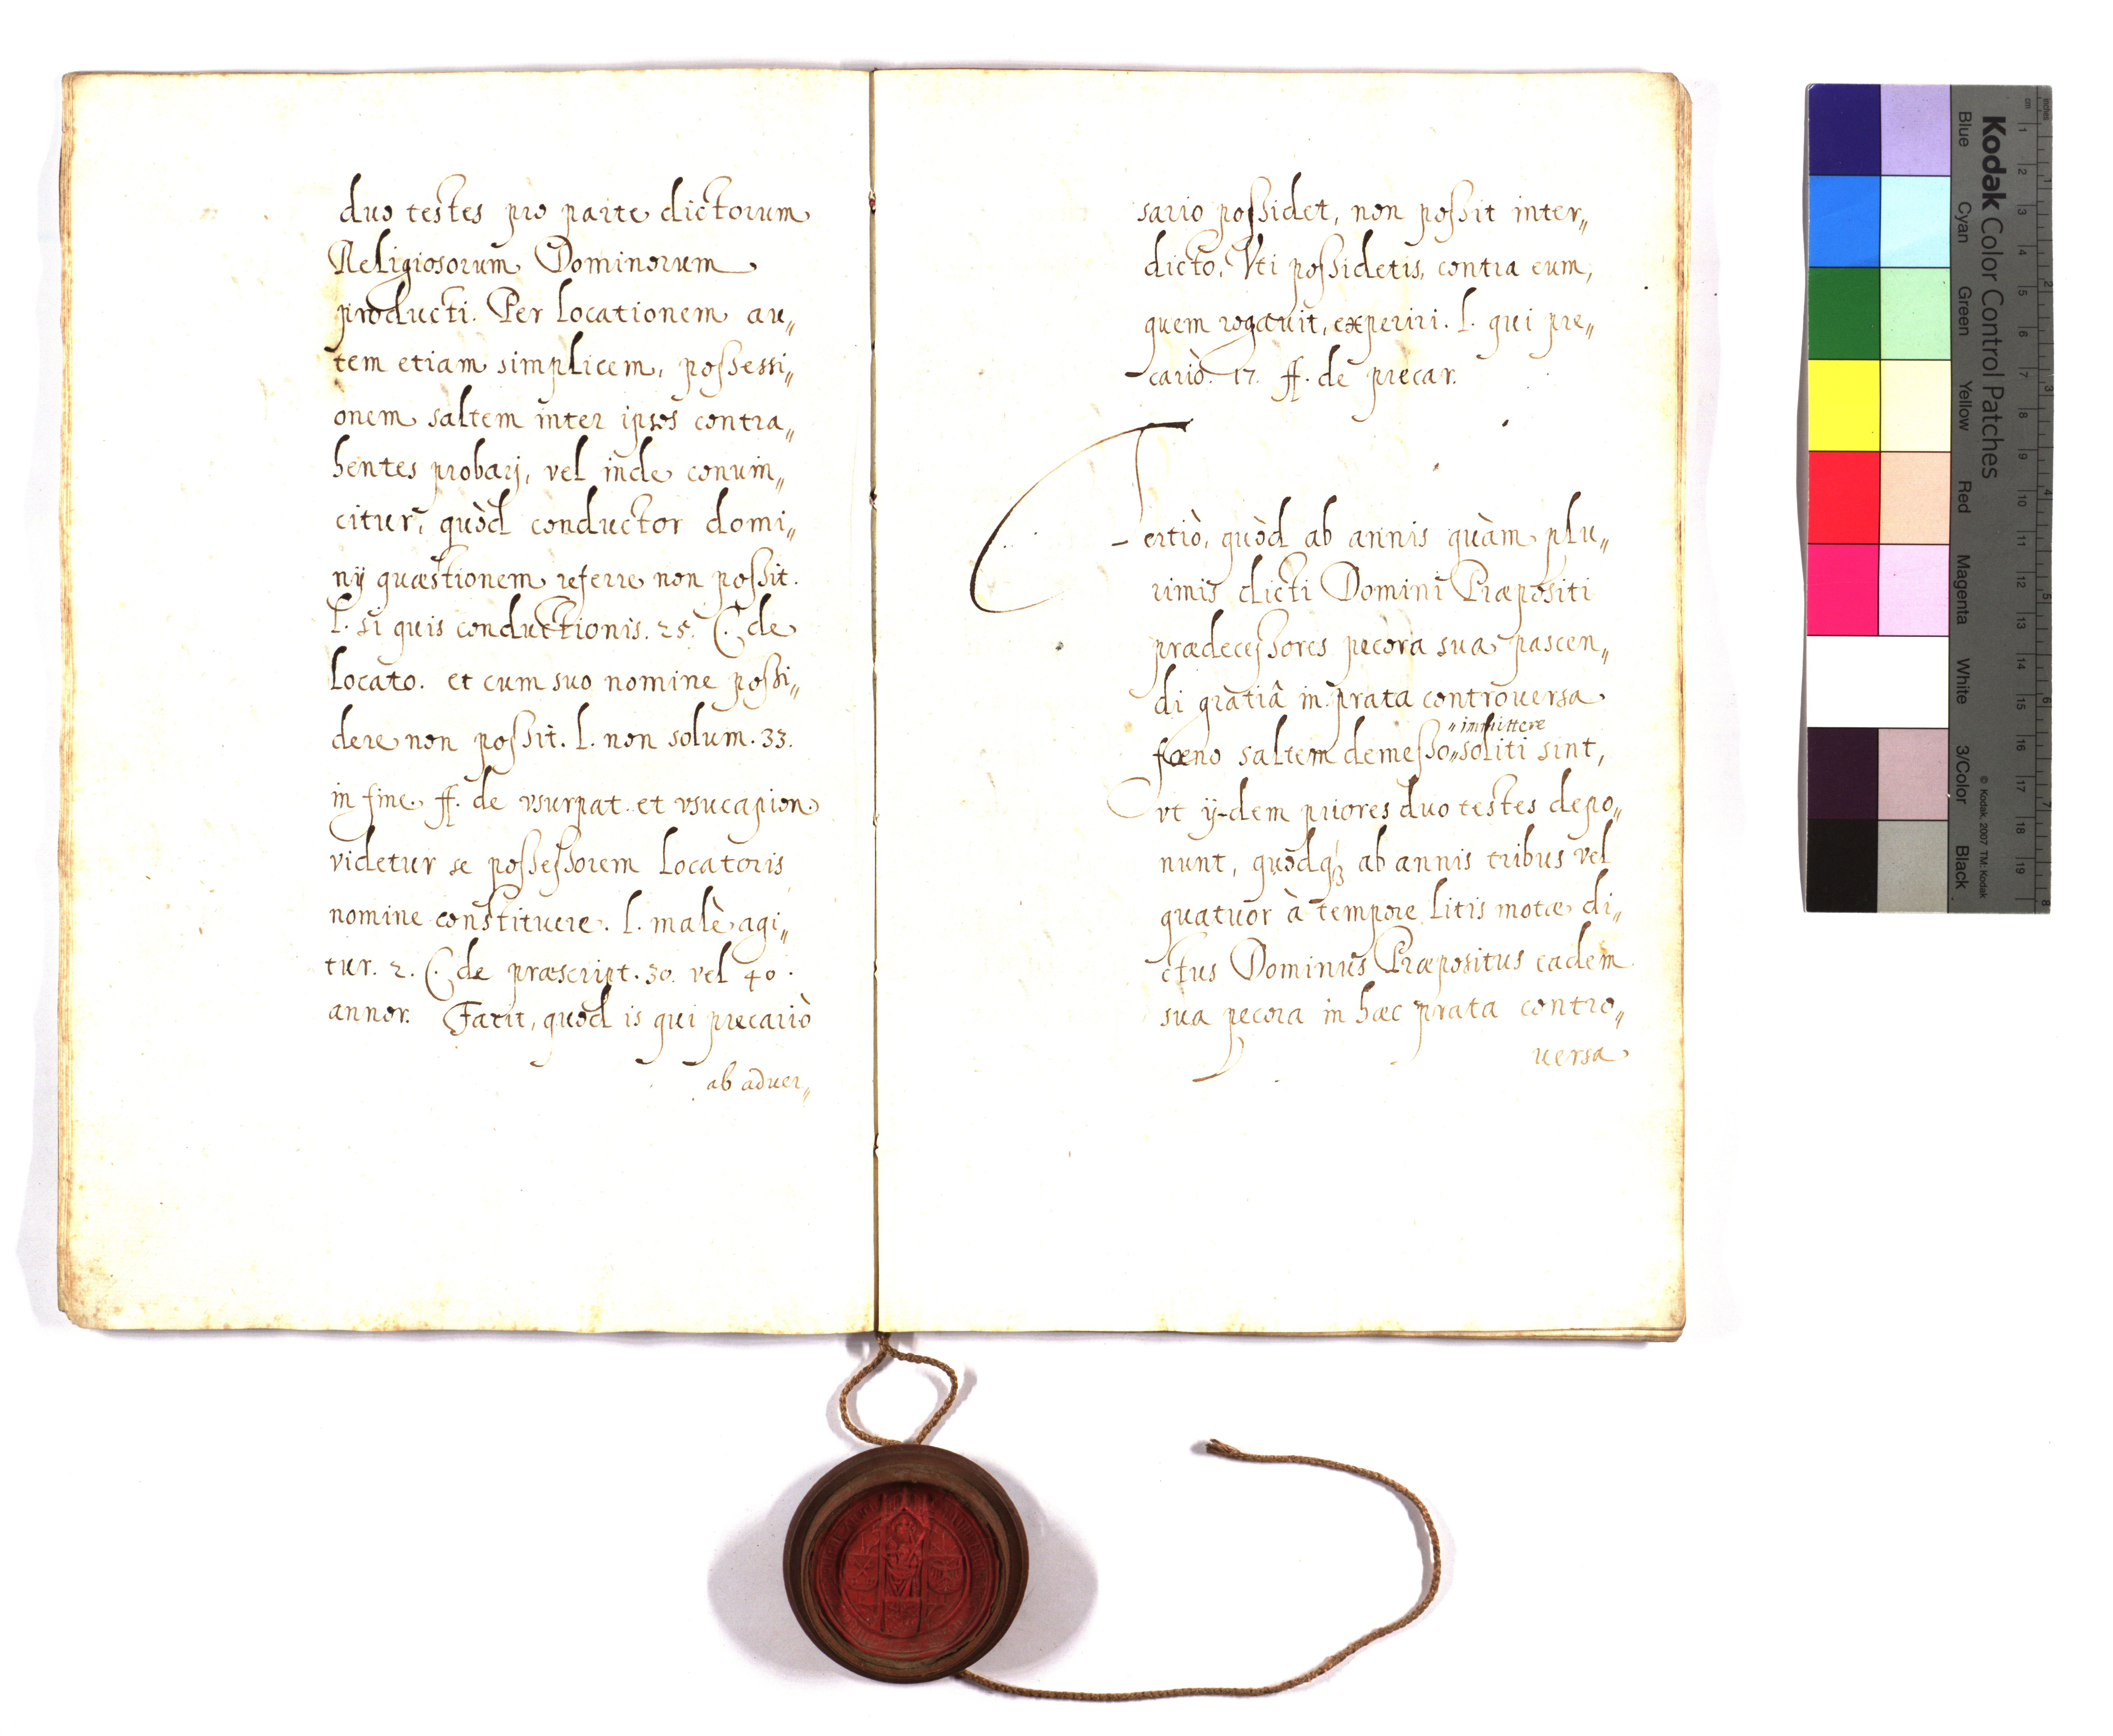 duo testes pro parte dictorum
Religiosorum Dominorum
producti. Per locationem au„
tem etiam simplicem, possessi„
onem saltem inter ipsos contra„
hentes probarj, vel inde conuin„
citur, quòd conductor domi„
nÿ quæstionem referre non possit.
l. si quis conductionis. 25. C. de
Locato. et cum suo nomine possi„
dere non possit. l. non solum. 33.
in fine. ff. de vsurpat. et vsucapion
videtur se possessorem Locatoris
nomine constituere. l. malè agi„
tur. 2. C. de præscript. 30. vel 40.
annor. Facit, quòd is qui precariò
ab aduer„
sario possidet, non possit inter„
dicto, Vti possidetis, contra eum,
quem rogauit, experiri. l. qui pre„
cariò. 17. ff. de precar.
Tertiò, quòd ab annis quàm plu„
rimis dicti Domini Præpositi
prædecessores pecora sua pascen„
di gratiâ in prata controuersa
„immittere
fœno saltem demesso„soliti sint,
vt ÿ-dem priores duo testes depo„
nunt, quòdq́ꝫ ab annis tribus vel
quatuor à tempore litis motæ di„
ctus Dominus Præpositus eadem
sua pecora in hæc prata contro„
uersa
Kodak Color Control Patches
Blue Cyan Green Yellow Red Magenta White 3/Color Black
© Kodak, 2007 TM: Kodak
cm 1 2 3 4 5 6 7 8 9 10 11 12 13 14 15 16 17 18 19
inches 1 2 3 4 5 6 7 8